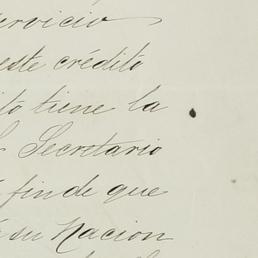 ervicio
este crédito
to tiene la
Secretario
fin de que
su Nacion